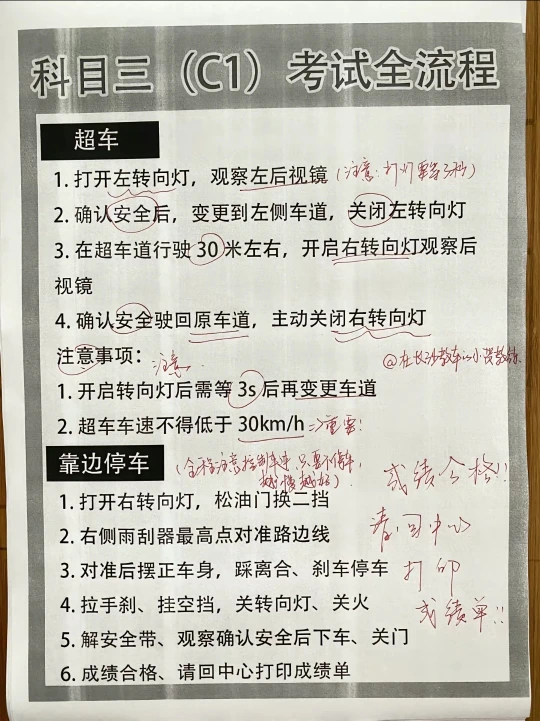 科目三（C1）考试全流程
超车
1. 打开左转向灯，观察左后视镜（注意：打灯要等3秒）
2. 确认安全后，变更到左侧车道，关闭左转向灯
3. 在超车道行驶 30 米左右，开启右转向灯观察后
视镜
4. 确认安全驶回原车道，主动关闭右转向灯
注意事项：注意
@在长沙教车的小吴教练
1. 开启转向灯后需等 3s 后再变更车道
2. 超车车速不得低于 30km/h => 重要！
靠边停车
（全程注意控制车速，只要不停车，
越慢越好）！
1. 打开右转向灯，松油门换二挡
2. 右侧雨刮器最高点对准路边线
3. 对准后摆正车身，踩离合、刹车停车
4. 拉手刹、挂空挡，关转向灯、关火
5. 解安全带、观察确认安全后下车、关门
6. 成绩合格、请回中心打印成绩单
成绩合格！！
请回中心
打印
成绩单！！